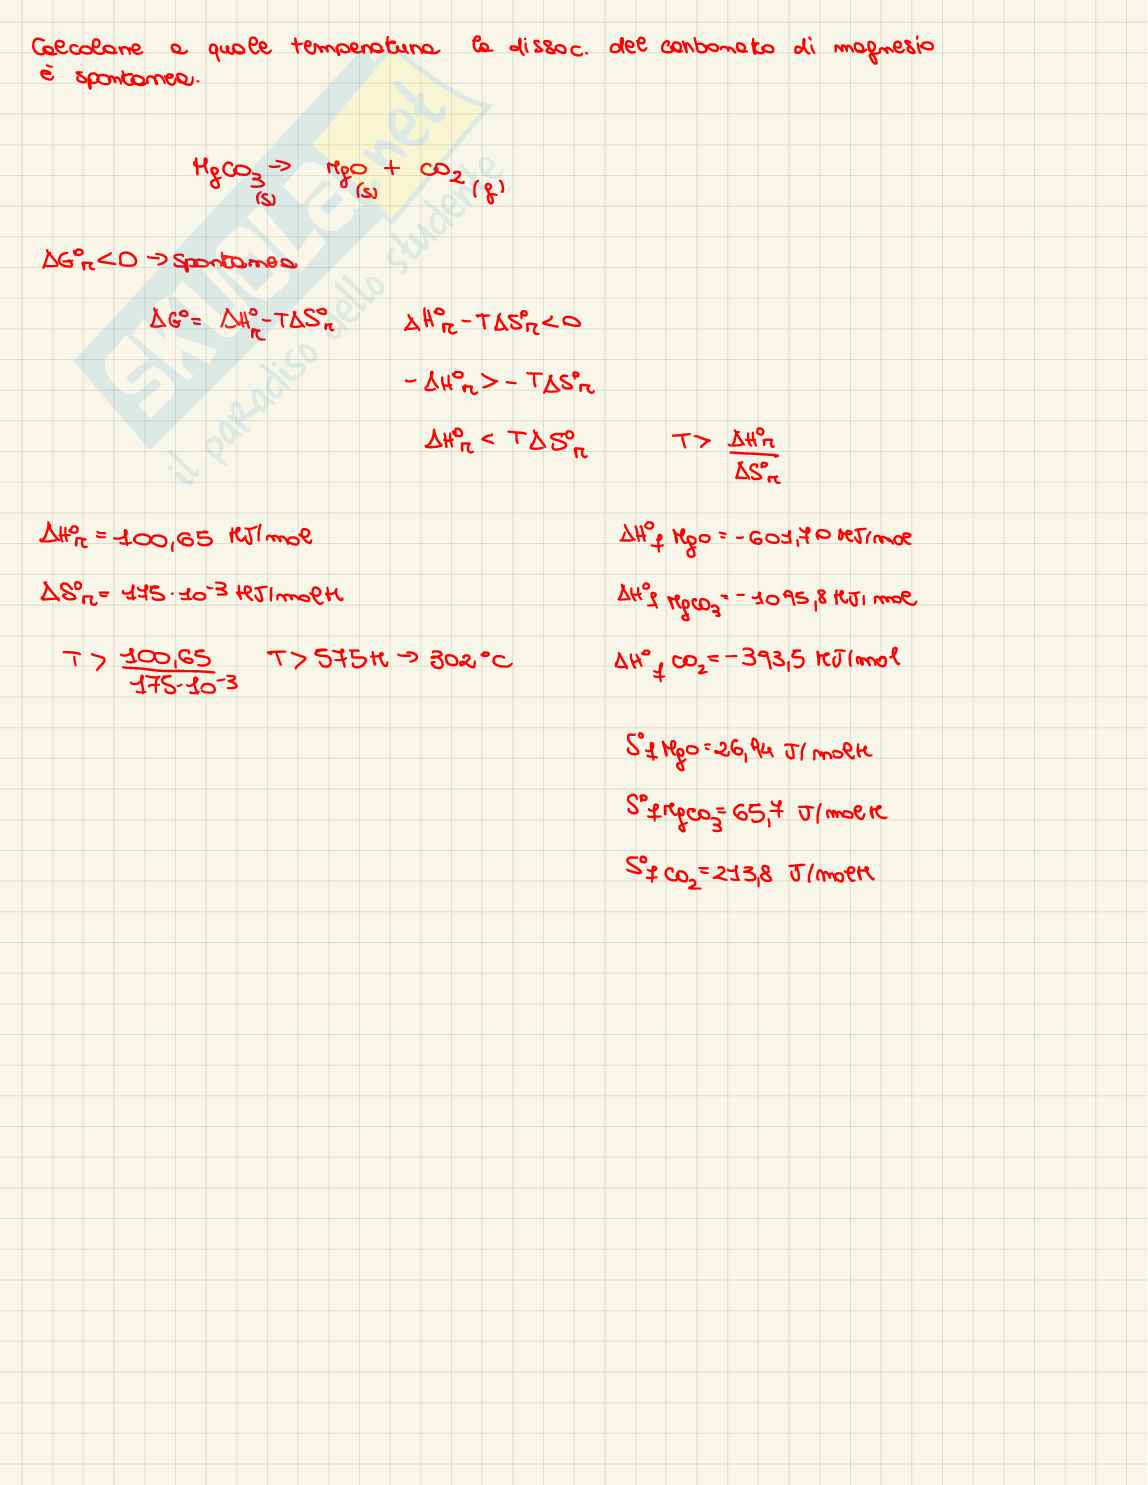 Calcolare a quale temperatura la dissoc. del carbonato di magnesio
è spontanea.
MgCO3(s) → MgO(s) + CO2(g)
ΔG°r < 0 → spontanea
ΔG° = ΔH°r - TΔS°r ΔH°r - TΔS°r < 0
- ΔH°r > - TΔS°r
ΔH°r < TΔS°r T > ΔH°r / ΔS°r
ΔH°r = 100,65 KJ/mol ΔH°f MgO = -601,70 KJ/mol
ΔS°r = 175·10^-3 KJ/molK ΔH°f MgCO3 = -1095,8 KJ/mol
T > 100,65 / 175·10^-3 T > 575K → 302°C ΔH°f CO2 = -393,5 KJ/mol
S°f MgO = 26,94 J/molK
S°f MgCO3 = 65,7 J/molK
S°f CO2 = 213,8 J/molK
SKUOLA.net
il paradiso dello studente